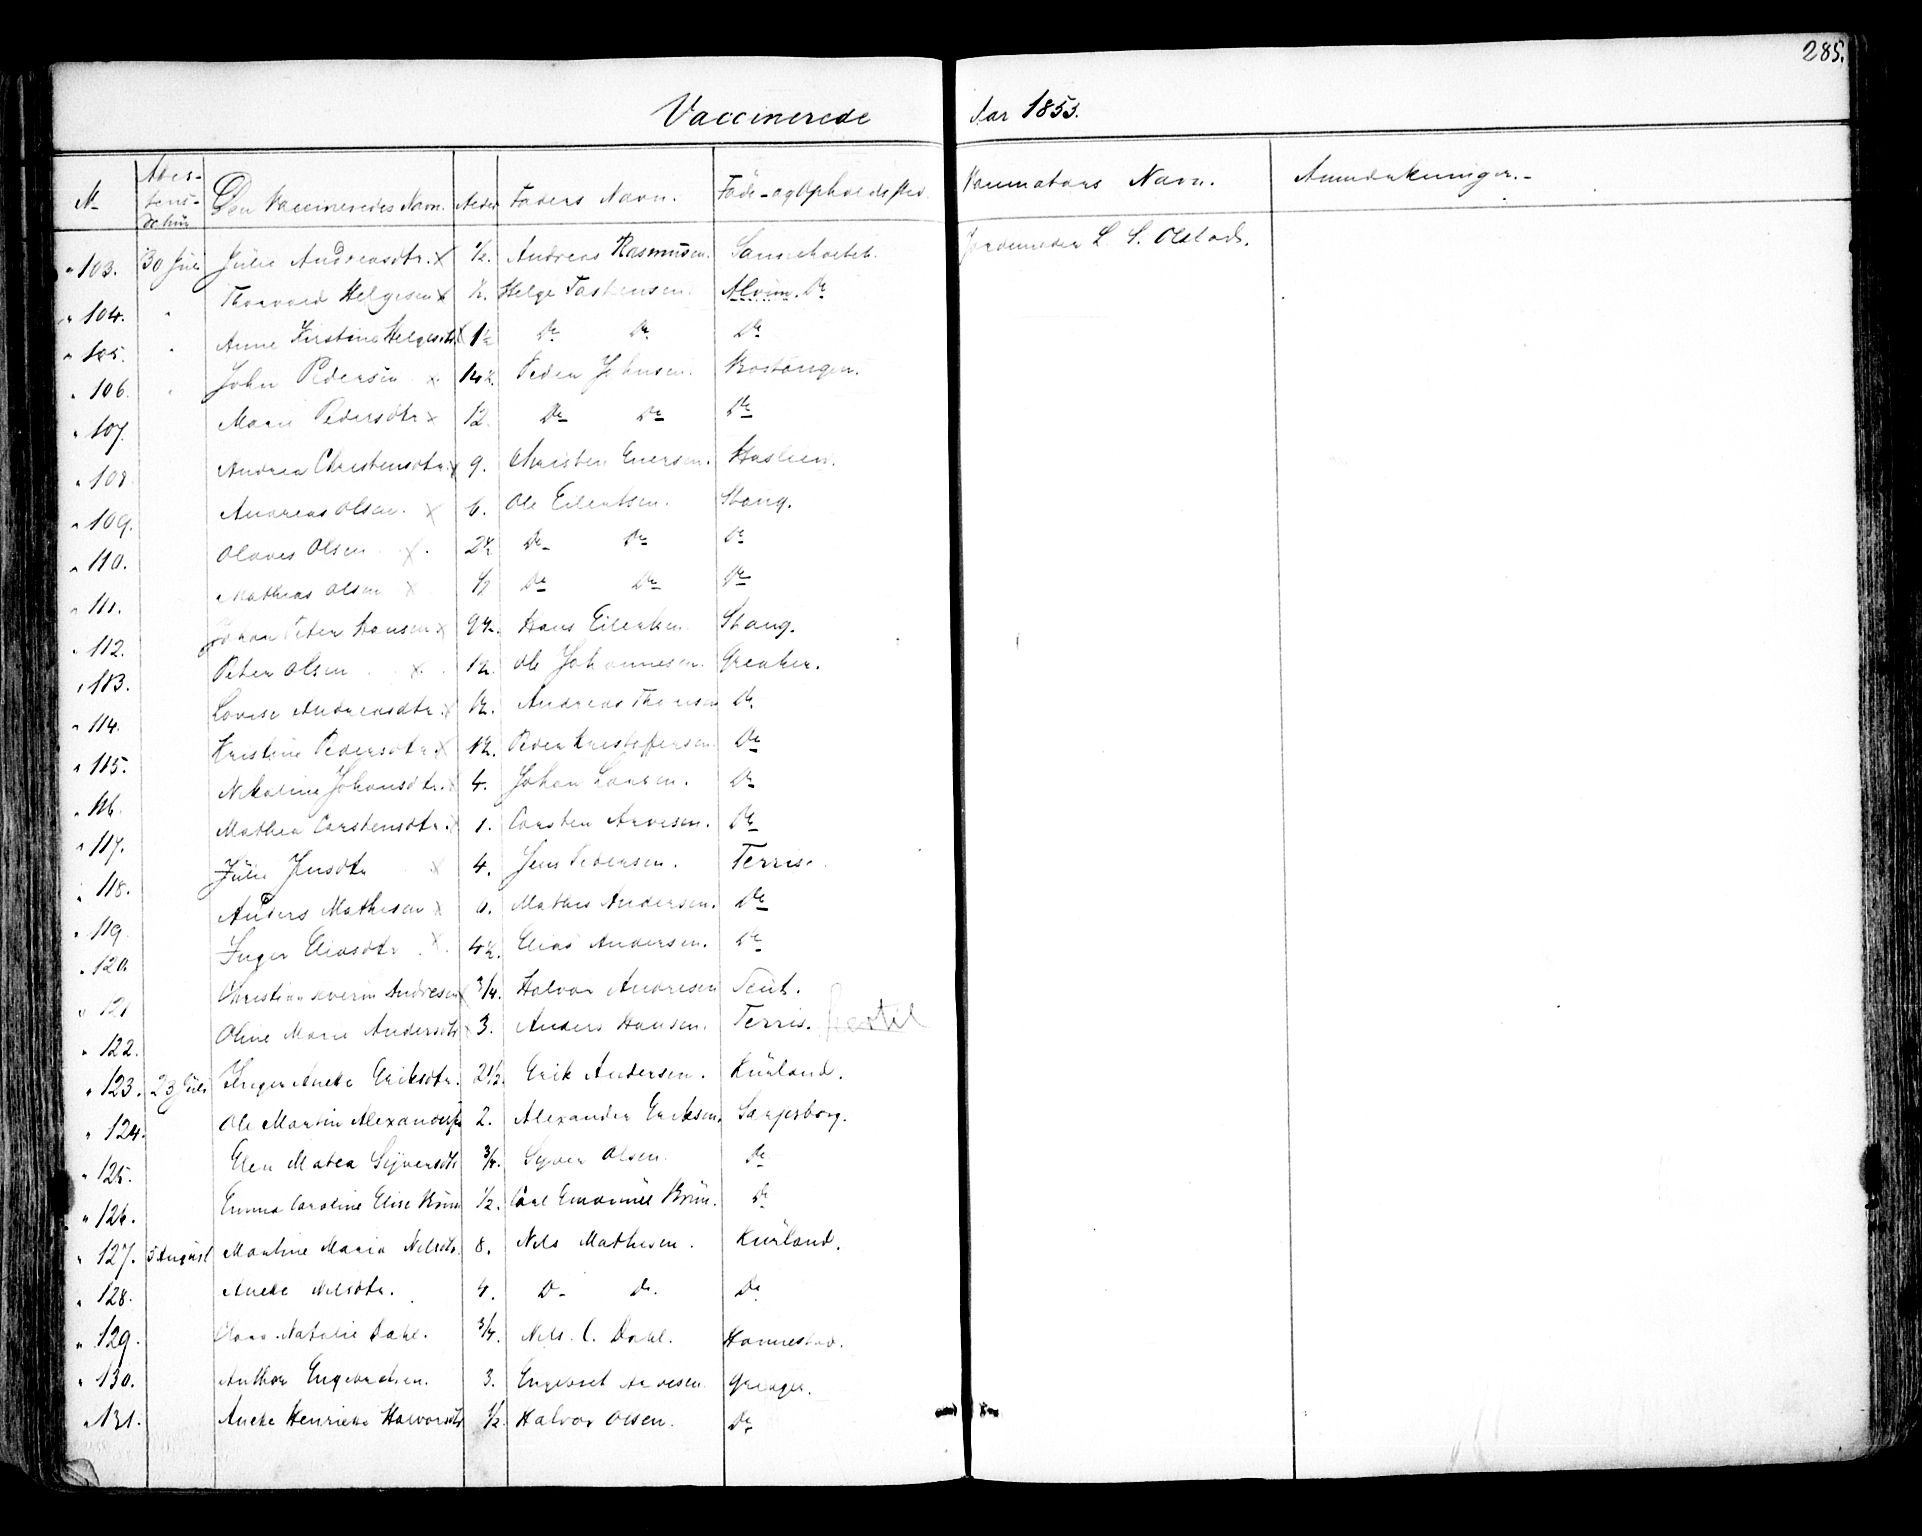 285.
Vaccinerede Aar 1853.
N Attestens Datum Den Vaccineredes Navn. Alder Faders Navn. Føde- og Opholdssted. Vaccinators Navn. Anmærkninger.
103. 30 Juli Julie Andreasdtr. x ½. Andreas Rasmusen. Sanneholtet. Jordemoder L. S. Olstad.
104. " Thorvald Helgesen x ½. Helge Tostensen. Alvim. Do
105. " Anne Kirstine Helgesdtr x 1½ Do Do Do
106. " John Pedersen x 14½. Peder Johnsen. Rostangen.
107. Marie Pedersdtr x 12. Do Do Do
108 Andrea Christensdtr. x 9. Christen Euersen. Haslien.
109. Andreas Olsen. x 6. Ole Eilertsen. Stang.
110. Olaves Olsen x. 2½ Do Do Do
111. Mathias Olsen x ½ Do Do Do
112. Johan Peter Hansen x 9½. Hans Eilertsen. Stang.
113. Peter Olsen x. 1½. Ole Johannesen. Greaker.
114. Lovise Andreasdtr. x 1½. Andreas Thoresen Do
115. Kristine Pedersdtr. x 1½. Peder Kristoffersen Do
116. Nikoline Johansdtr. x 4. Johan Larsen. Do
117. Mathea Carstensdtr. x 1. Carsten Arvesen. Do
118. Julie Jensdtr x 4. Jens Pedersen. Terris.
119. Anders Mathisen x 6. Mathis Andersen. Do
120. Inger Eliasdtr x. 4½. Elias Andersen. Do
121 Christian Severin Andresen x ¾. Halvor Andresen
122. Oline Marie Andersdtr x 3. Anders Hansen. Terris.
123. 23 Juli Inger Aneke Eriksdtr. 2½. Erik Andersen. Kurland.
124. Ole Martin Alexanders. 2. Alexander Eriksen. Sarpsborg.
125. Elen Matea Syversdtr ¾. Syver Olsen. Do
126. Emma Caroline Elise Brun ½. Carl Emanuel Brun. Do
127. 5 August Martine Maria Nilsdtr. 8. Nils Mathisen. Kurland.
128. Aneke Nilsdtr. 4. Do Do. Do
129. Clara Natalie Dahl. ¾. Nils. C. Dahl. Hannestad.
130. Anthon Engebretsen. 3. Engebret Arvesen Greager.
131. Aneke Henrieke Halvorsdtr ½ Halvor Olsen. Do